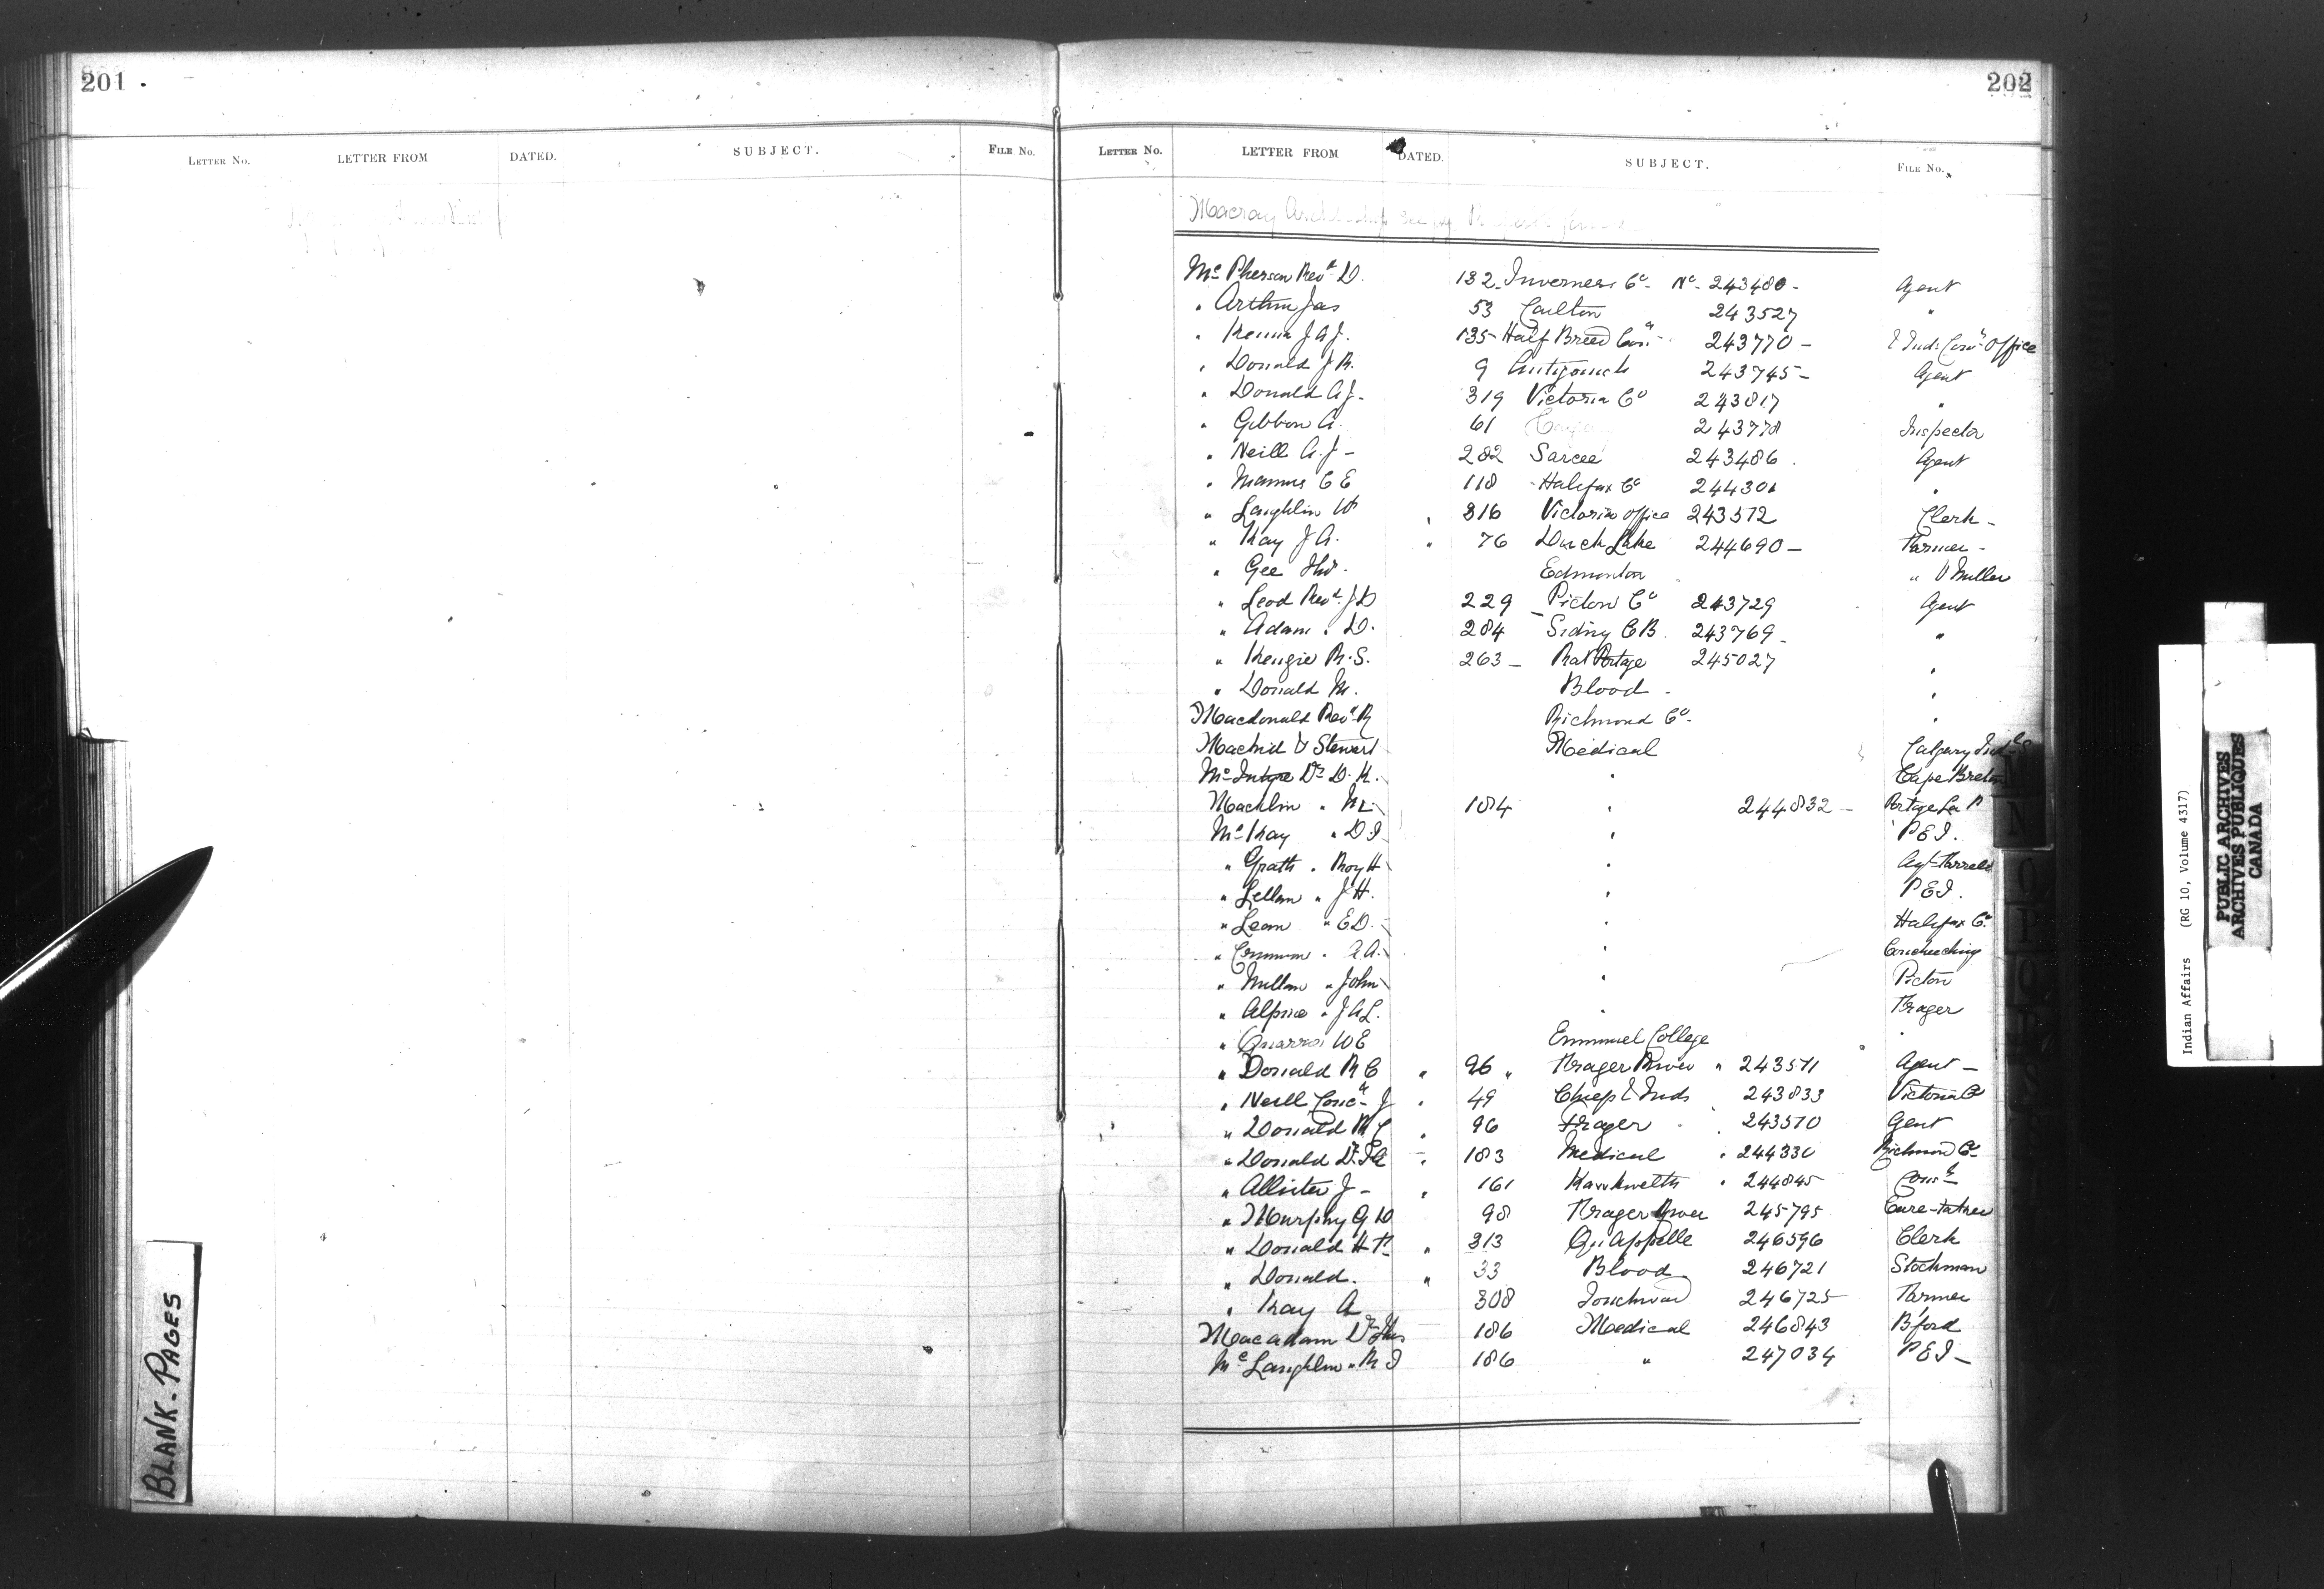 201
LETTER No. LETTER FROM DATED. SUBJECT. FILE No.
BLANK-PAGES
202
LETTER No. LETTER FROM DATED. SUBJECT. FILE No.
Macray
Mc Pherson Revd D. 132 Inverness Co - No - 243480 - Agent
" Arthur Jas 53 Carlton 243527 "
" Kenna J A J. 135 - Half Breed Com 243770 - Office
" Donald J R. 9 Antigonish 243745 - Agent
" Donald A J - 319 Victoria Co 243817 "
" Gibbon A. 61 243778 Inspector
" Neill A. J - 282 Sarcee 243486 . Agent
" Manus C E 118 - Halifax Co 244301 "
" Laughlin W " 316 Victoria office 243572 Clerk -
" Kay J A. " 76 Duck Lake 244690 - Farmer -
" Gee Thos. Edmonton " & Miller
" Leod Revd. J D 229 _ Picton Co 243729 Agent
" Adam . D. 284 Sidny C B. 243769 - "
" Kenzie R. S. 263 - Rat Portage 245027 "
" Donald M. Blood - "
Macdonald Revd. R Richmond Co. "
Macknid & Stewart Medical Calgary Ind S
Mc Intyre Dr D. K. " Cape Breton
Macklin " M L 184 " 244832 - Portage La P
Mc Kay " D I " P E I.
" Grath " Roy H " Agt Farrell
" Lellan " J H. " P E I.
" Lean " E D. - " Halifax Co
" Common " A A. " Couchiching
" Millan " John " Picton
" Alpine " J A L. " Frager
" Quarroi W E Emmuel College "
" Donald R C " 96 " Frager River " 243571 Agent -
" Neill J " 49 Chiep & Inds " 243833 Victoria Co
" Donald R C " 96 Frager " 243570 Agent
" Donald Dr " 183 Medical " 244330 Richmond Co
" Allister J - " 161 Kawkwelth " 244845
" Murphy G W 98 Frager River 245795 Care-taker
" Donald H " 313 Qu Appelle 246596 Clerk
" Donald. " 33 Blood 246721 Stockman
" Kay A 308 Touchwood 246725 Farmer
Macadam Dr Thos 186 Medical 246843 B'ford
Mc Laughlin " R I 186 " 247034 P E I -
N
O
P
Q
R
S
Indian Affairs (RG 10, Volume 4317)
PUBLIC ARCHIVES
ARCHIVES PUBLIQUES
CANADA